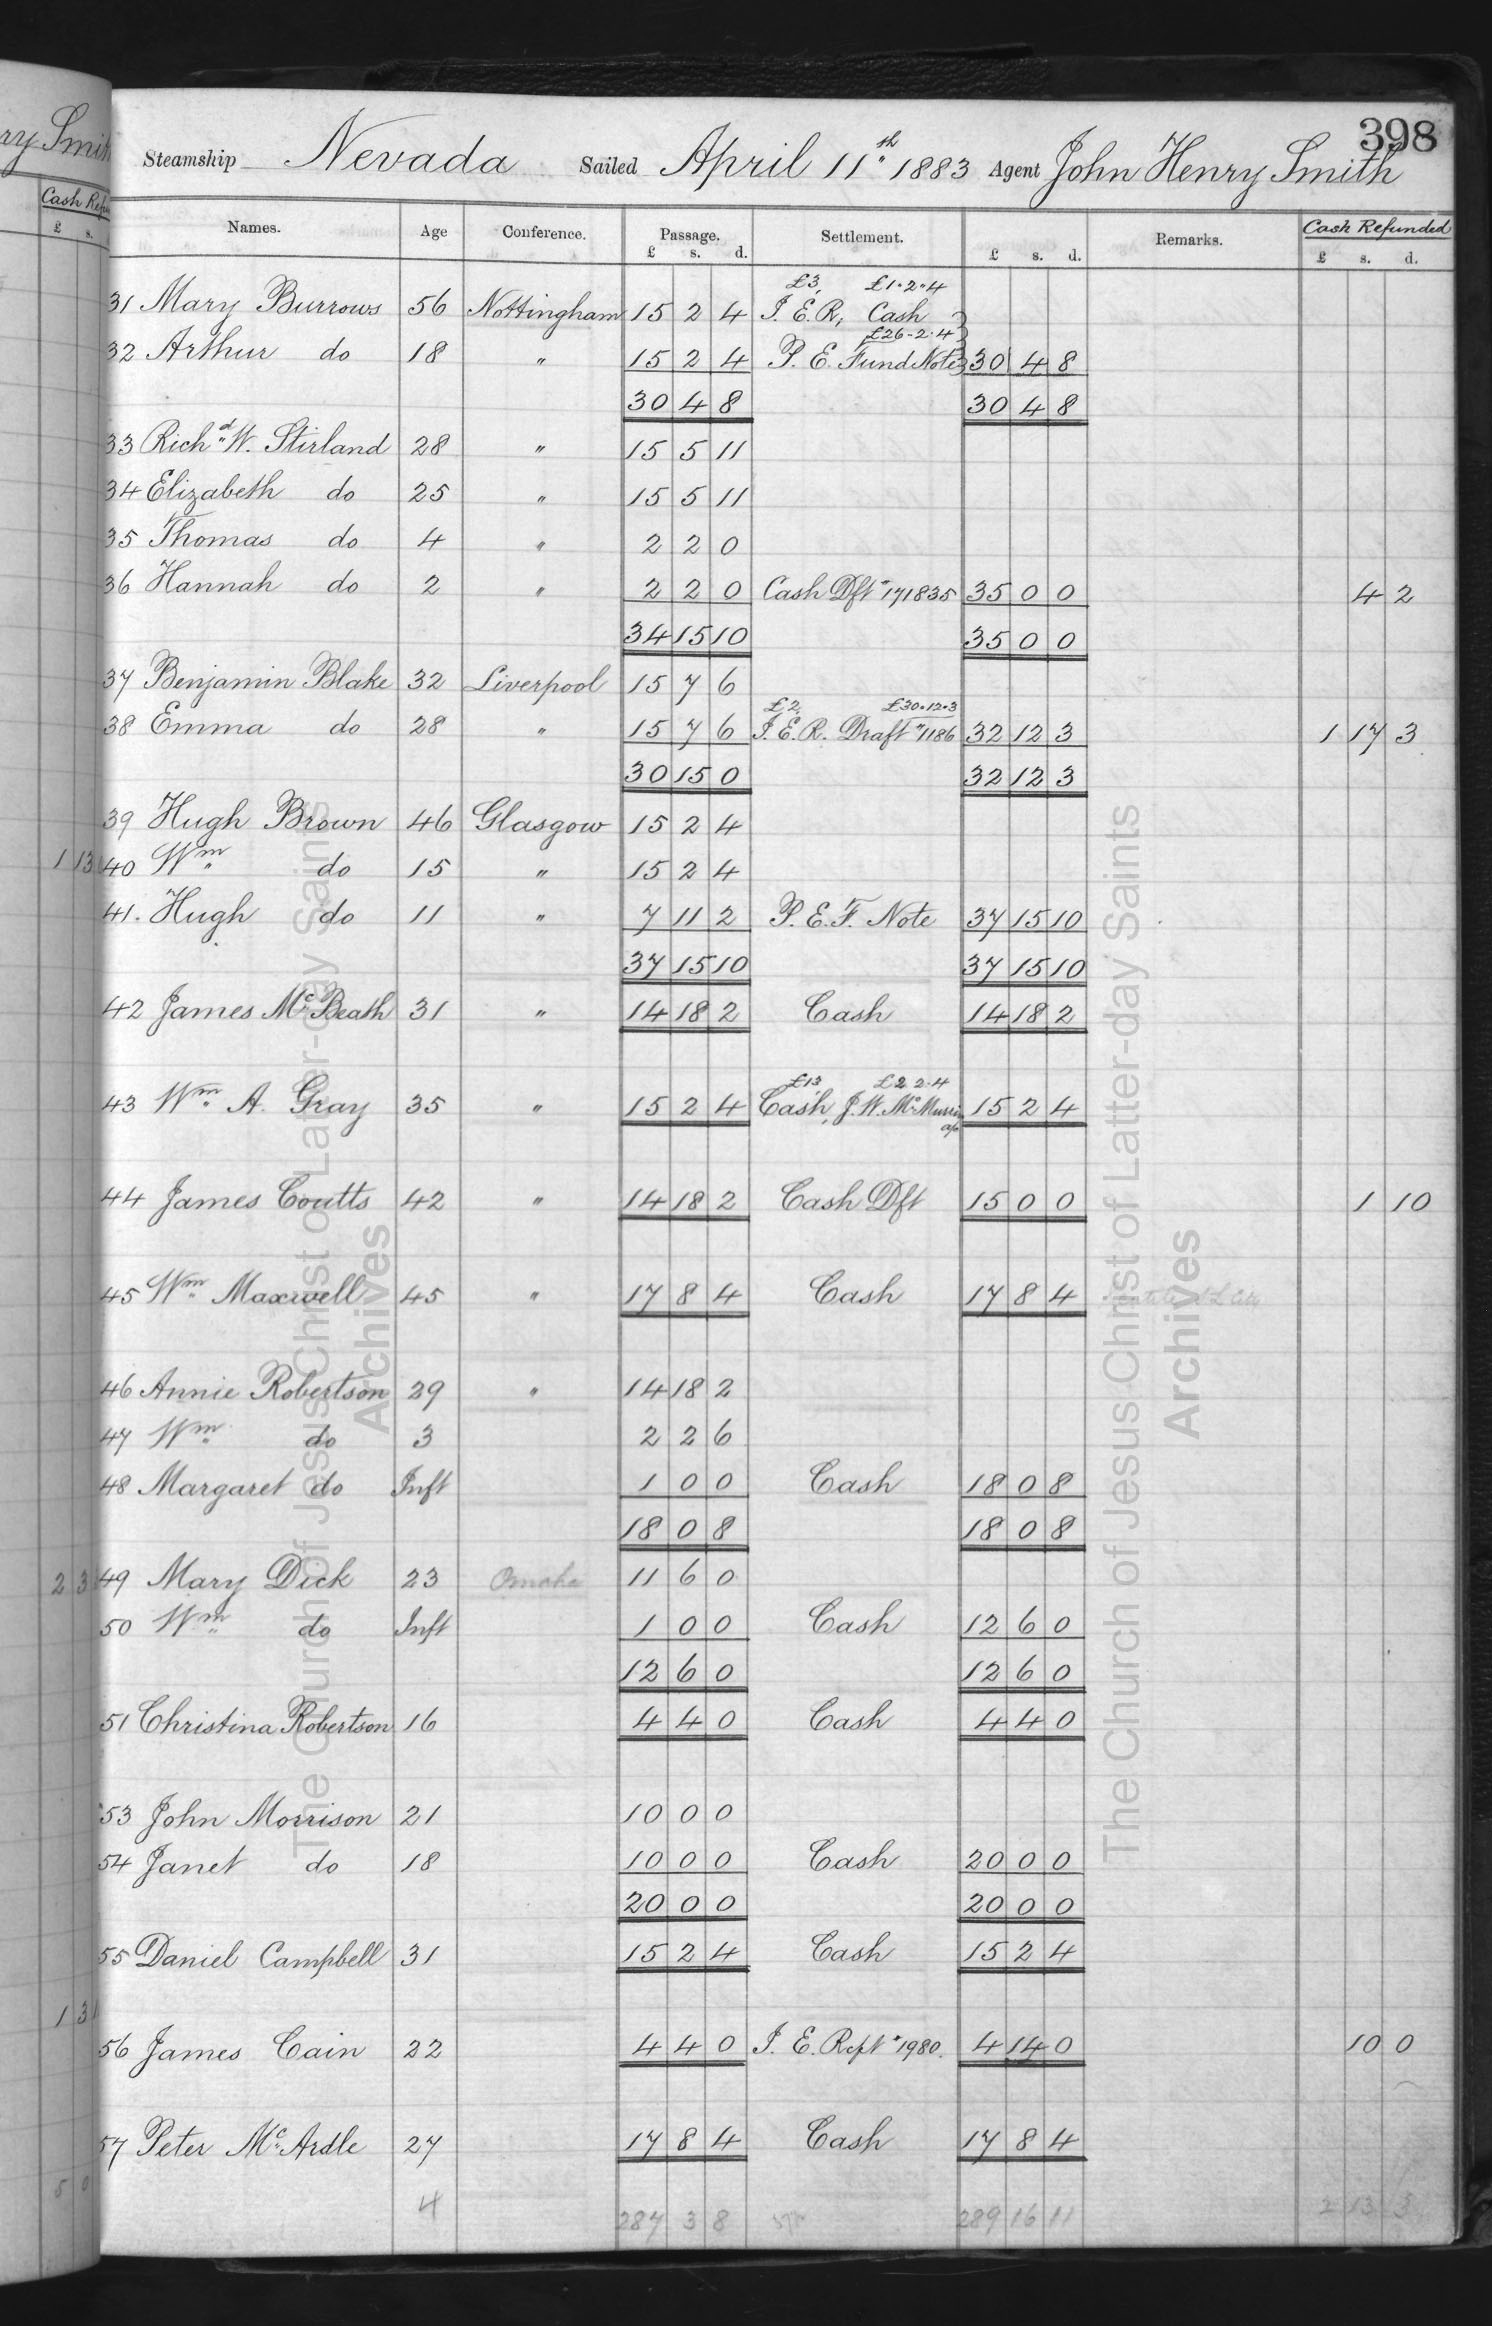 398
Steamship Nevada Sailed April 11th 1883 Agent John Henry Smith
Names. Age Conference. Passage. Settlement. Remarks. Cash Refunded
£ s. d. £ s. d. £ s. d.
£3, £1·2·4
31 Mary Burrows 56 Nottingham 15 2 4 I. E. R, Cash
£26-2·4
32 Arthur do 18 " 15 2 4 P. E. Fund Note 30 4 8
30 4 8 30 4 8
33 Richd W. Stirland 28 " 15 5 11
34 Elizabeth do 25 " 15 5 11
35 Thomas do 4 " 2 2 0
36 Hannah do 2 " 2 2 0 Cash Dft " 171835 35 0 0 4 2
34 15 10 35 0 0
37 Benjamin Blake 32 Liverpool 15 7 6
£2, £30·12·3
38 Emma do 28 " 15 7 6 I. E. R. Draft " 1186 32 12 3 1 17 3
30 15 0 32 12 3
39 Hugh Brown 46 Glasgow 15 2 4
40 Wm do 15 " 15 2 4
41. Hugh do 11 " 7 11 2 P. E. F. Note 37 15 10
37 15 10 37 15 10
42 James McBeath 31 " 14 18 2 Cash 14 18 2
£13 £2 2·4
43 Wm A. Gray 35 " 15 2 4 Cash, J. W. McMurrin 15 2 4
44 James Coutts 42 " 14 18 2 Cash Dft 15 0 0 1 10
45 Wm Maxwell 45 " 17 8 4 Cash 17 8 4
46 Annie Robertson 29 " 14 18 2
47 Wm do 3 2 2 6
48 Margaret do Inft 1 0 0 Cash 18 0 8
18 0 8 18 0 8
49 Mary Dick 23 Omaha 11 6 0
50 Wm do Inft 1 0 0 Cash 12 6 0
12 6 0 12 6 0
51 Christina Robertson 16 4 4 0 Cash 4 4 0
53 John Morrison 21 10 0 0
54 Janet do 18 10 0 0 Cash 20 0 0
20 0 0 20 0 0
55 Daniel Campbell 31 15 2 4 Cash 15 2 4
56 James Cain 22 4 4 0 I. E. Rept " 1980. 4 14 0 10 0
57 Peter McArdle 27 17 8 4 Cash 17 8 4
4 287 3 8 289 16 11 2 13 3
The Church of Jesus Christ of Latter-day Saints
Archives
The Church of Jesus Christ of Latter-day Saints
Archives